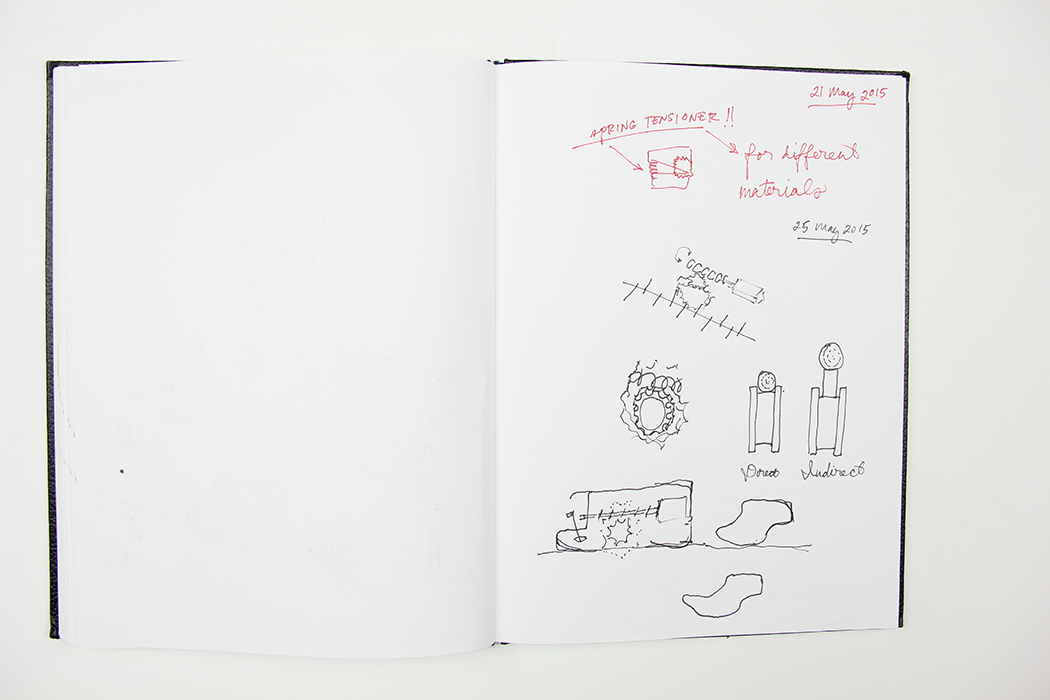 21 May 2015
SPRING TENSIONER!!
for different
materials
25 May 2015
Direct Indirect